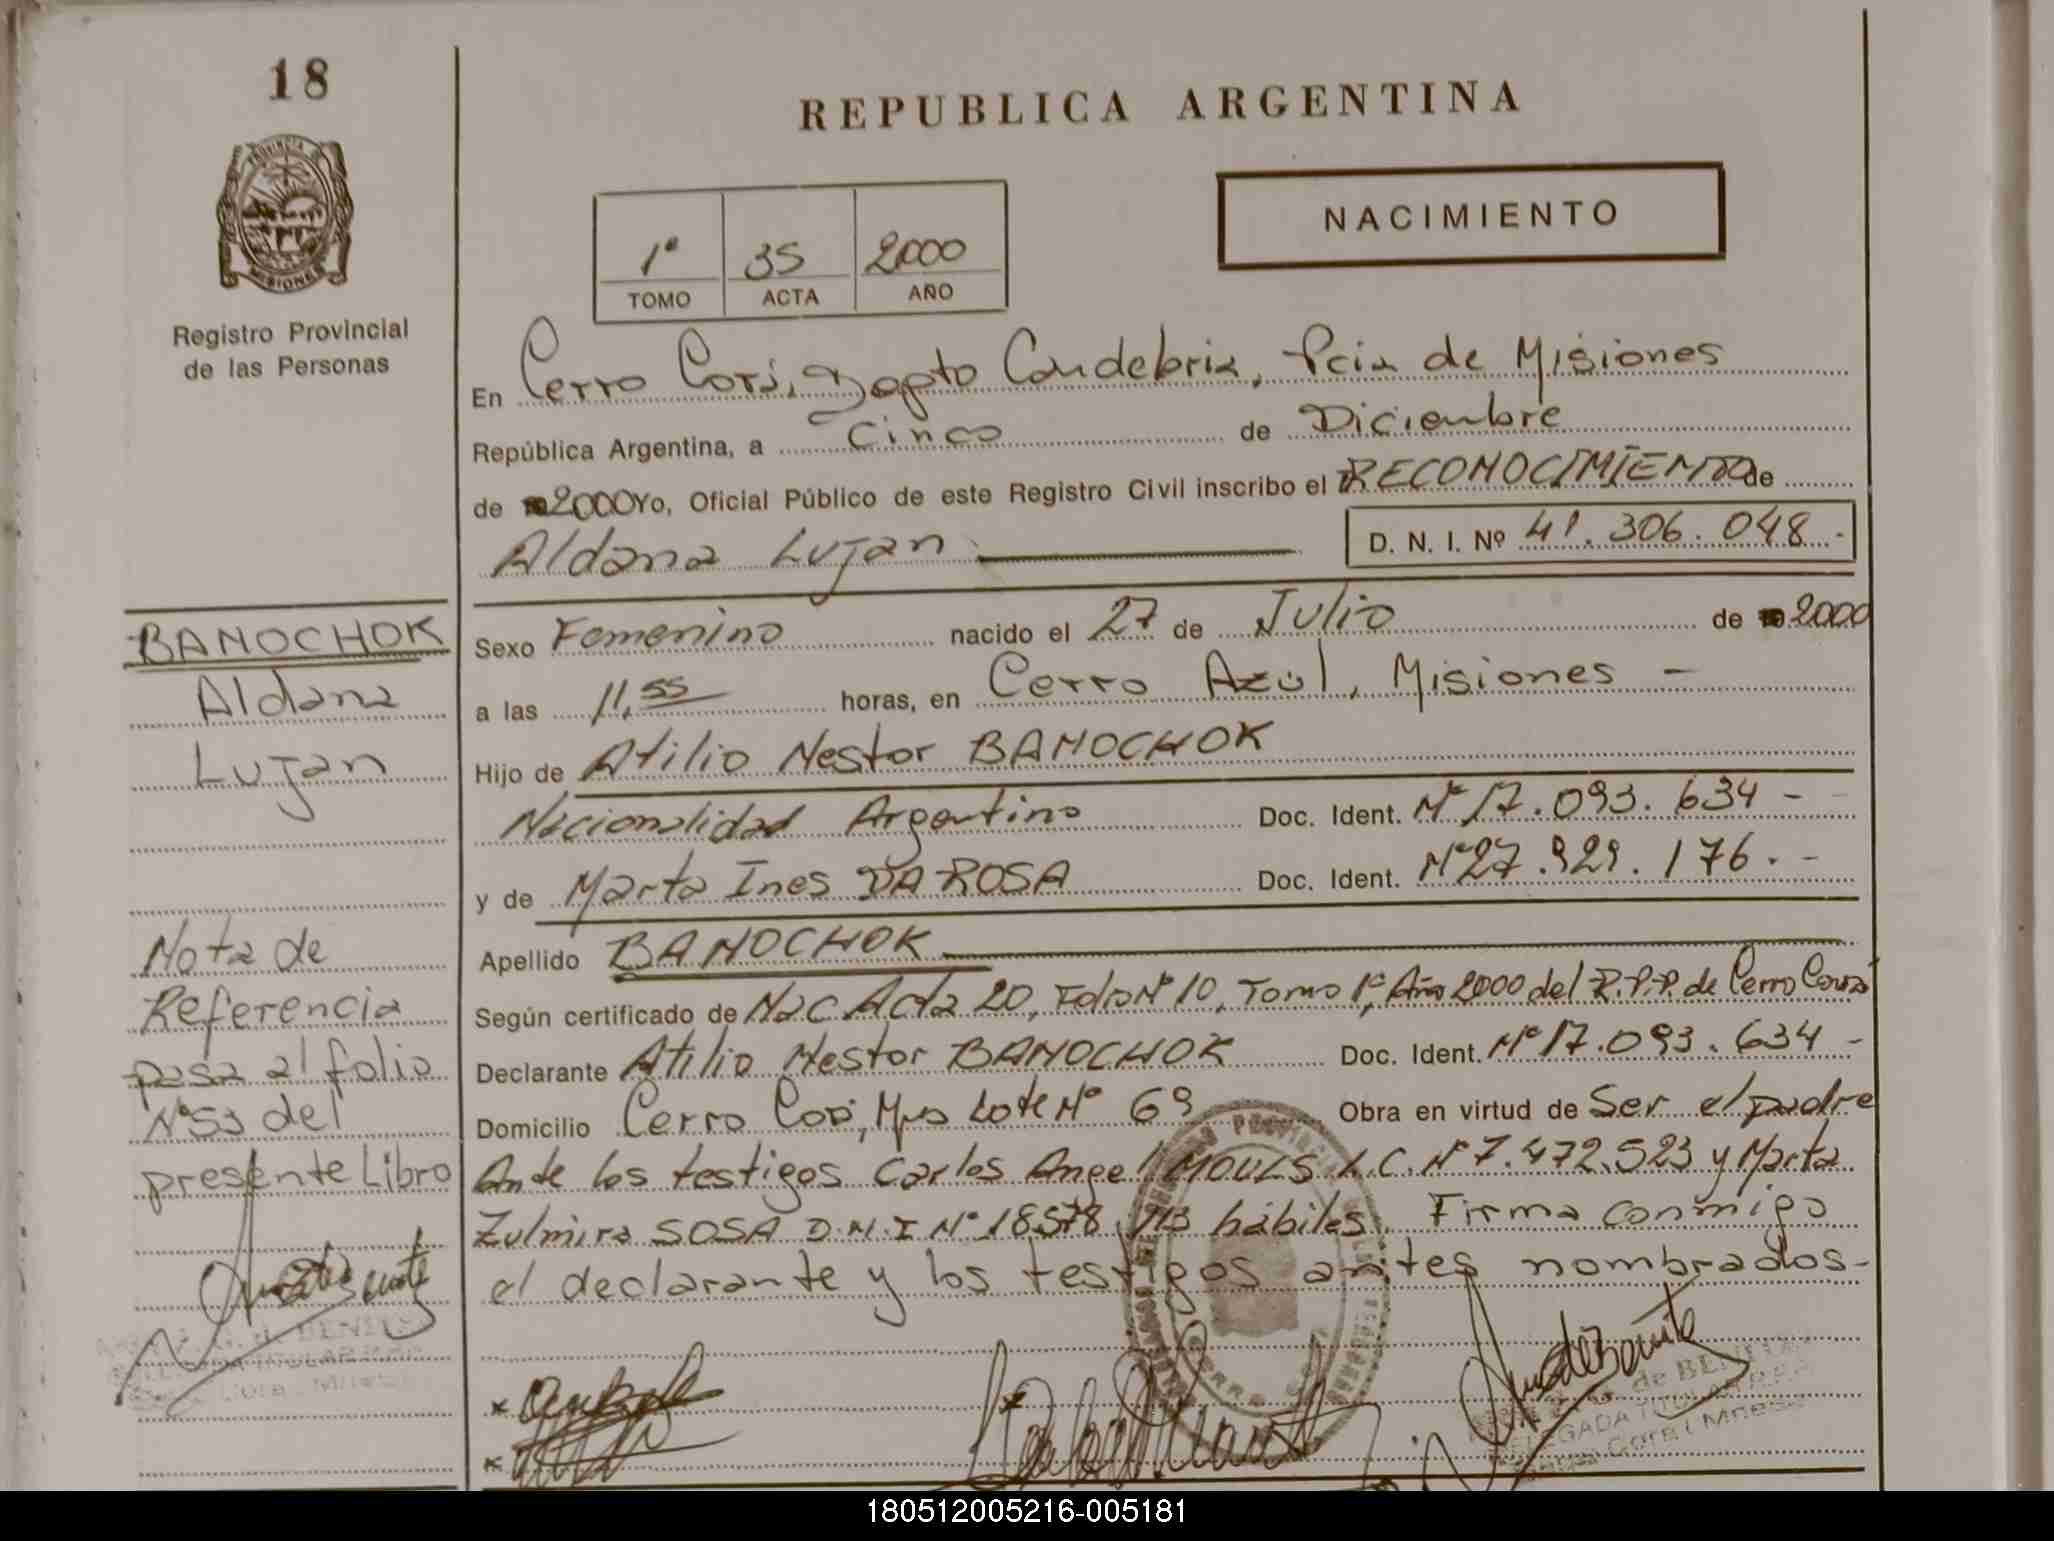 18
REPUBLICA ARGENTINA
NACIMIENTO
1º 35 2000
TOMO ACTA AÑO
Registro Provincial
de las Personas
En Cerro Corá, Dopto Candelaria, Pcia de Misiones
República Argentina, a Cinco de Diciembre
de 2000 Yo, Oficial Público de este Registro Civil inscribo el RECONOCIMIENTO de
Aldana Lujan
D. N. I. Nº 41.306.048.-
BANOCHOK
Aldana
Lujan
Sexo Femenino nacido el 27 de Julio de 2000
a las 11,55 horas, en Cerro Azul, Misiones -
Hijo de Atilio Nestor BANOCHOK
Nacionalidad Argentino Doc. Ident. Nº 17.093.634 -
y de Marta Ines DA ROSA Doc. Ident. Nº 27.929.176.-
Apellido BANOCHOK
Según certificado de Nac Acta 20, Folio Nº 10, Tomo 1º, Año 2000 del R.P.P. de Cerro Corá
Declarante Atilio Nestor BANOCHOK Doc. Ident. Nº 17.093.634 -
Domicilio Cerro Corá, Mnes Lote Nº 69 Obra en virtud de Ser el padre
Ante los testigos Carlos Angel MOULS L.C. Nº 7.472.523 y Marta
Zulmira SOSA D.N.I Nº 18.578.713 hábiles. Firma conmigo
el declarante y los testigos antes nombrados-
Nota de
Referencia
pasa al folio
Nº 53 del
presente Libro
de BENITEZ
DELEGADA TITULAR R.P.P.
Cerro Corá, Mnes
180512005216-005181